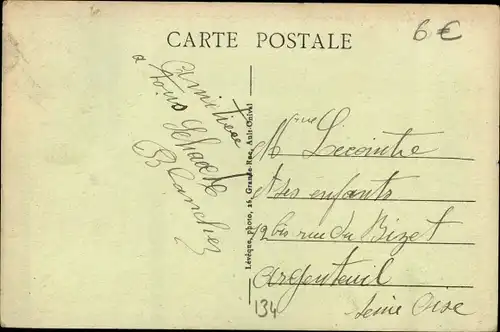 CARTE POSTALE
6 €
Amitiées
a tous
Blanche
Lévêque, photo, 26, Grande-Rue, Ault-Onival
Mme Lecointre
et ses enfants
12 bis rue du Bizet
Argenteuil
Seine Oise
134